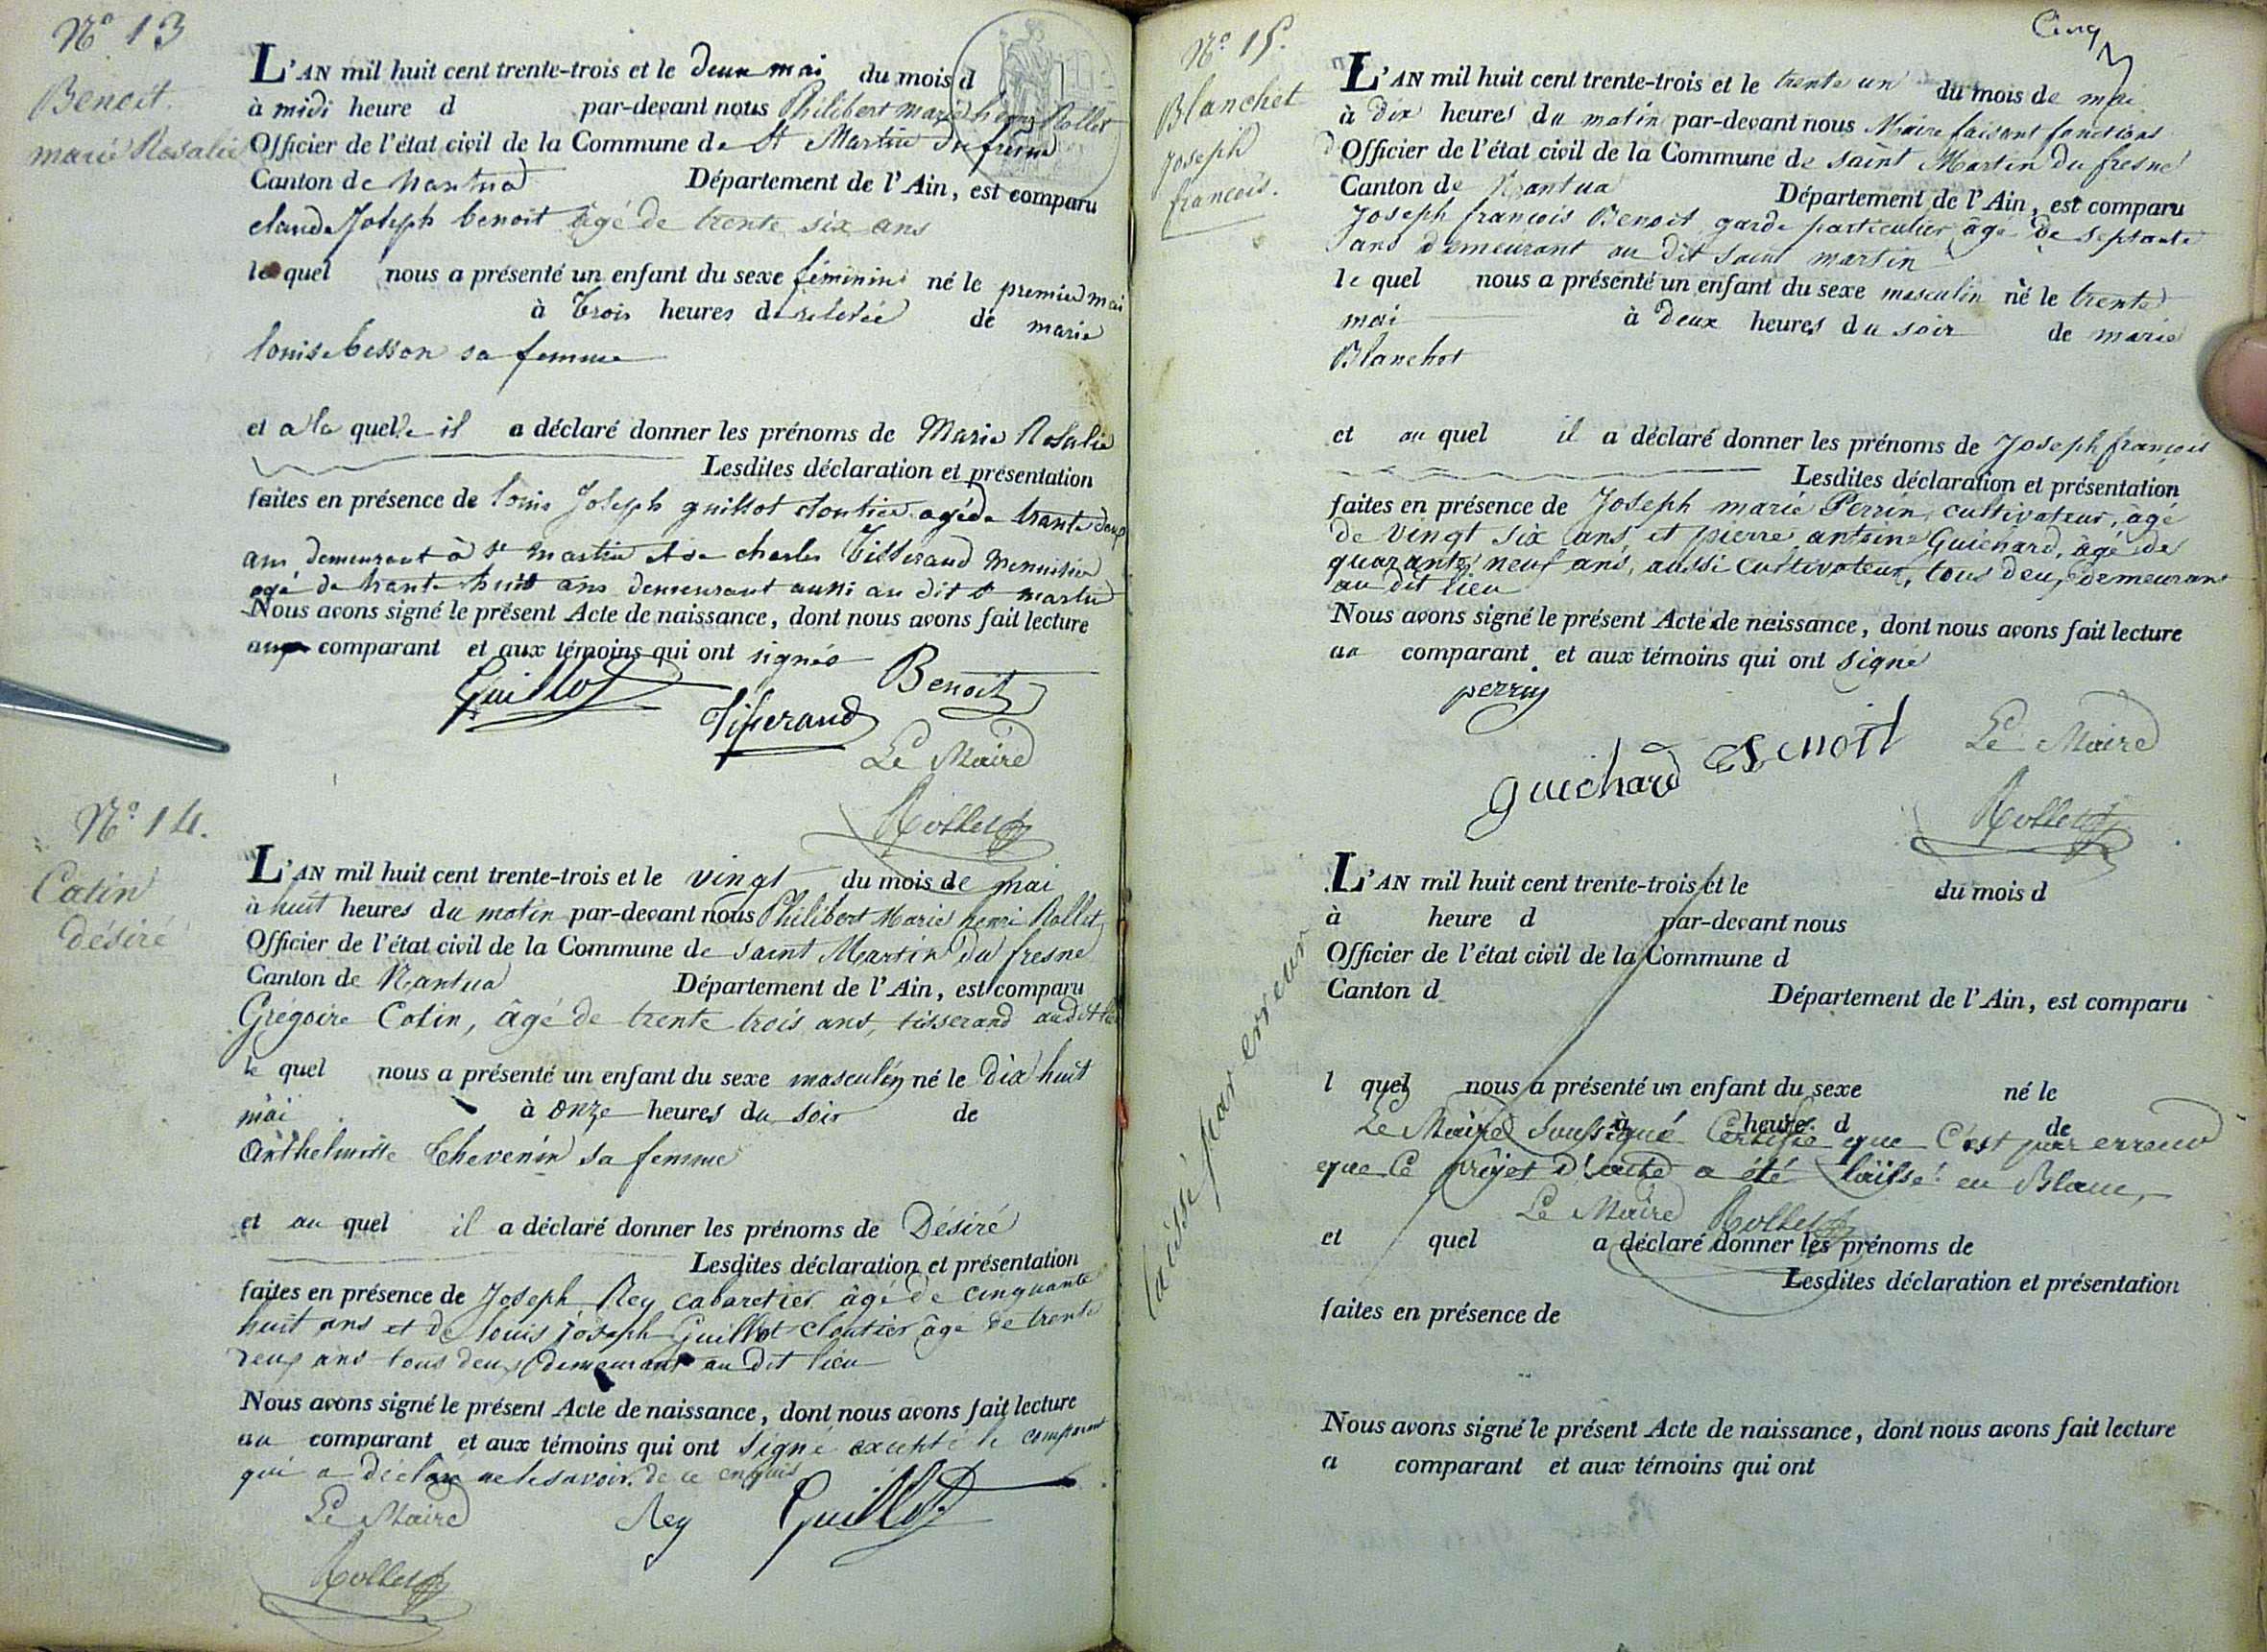 N° 13
Benoit
marie Rosalie
L'AN mil huit cent trente-trois et le deux mai du mois d
à midi heure d par-devant nous Philibert marie henri Rollet
Officier de l'état civil de la Commune de St Martin du fresne
Canton de Nantua Département de l'Ain, est comparu
claude Joseph benoit âgé de trente six ans
lequel nous a présenté un enfant du sexe féminin né le premier mai
à trois heures de relevée de marie
louise besson sa femme
et a la quelle il a déclaré donner les prénoms de Marie Rosalie
Lesdites déclaration et présentation
faites en présence de louis Joseph guillot cloutier agé de trante deux
ans demeurant à st martin et de charles Tisserand Menuisier
agé de trante huit ans demeurant aussi au dit st martin
Nous avons signé le présent Acte de naissance, dont nous avons fait lecture
au comparant et aux témoins qui ont signés
Guillot Benoit
Tisserand
Le Maire
Rollet
N° 14.
Cotin
désiré
L'AN mil huit cent trente-trois et le vingt du mois de mai
à huit heures du matin par-devant nous Philibert Marie henri Rollet
Officier de l'état civil de la Commune de saint Martin du fresne
Canton de Nantua Département de l'Ain, est comparu
Grégoire Cotin, âgé de trente trois ans, tisserand audit lieu
le quel nous a présenté un enfant du sexe masculin né le dix huit
mai à onze heures du soir de
Anthelmette Chevenin sa femme
et au quel il a déclaré donner les prénoms de Désiré
Lesdites déclaration et présentation
faites en présence de Joseph Rey cabaretier âgé de cinquante
huit ans et de louis joseph Guillot cloutier âgé de trente
deux ans tous deux demeurant au dit lieu
Nous avons signé le présent Acte de naissance, dont nous avons fait lecture
au comparant et aux témoins qui ont signé excepté le comparant
qui a déclaré ne le savoir de ce enquis
Le Maire Rey Guillot
Rollet
Cinq
N° 15.
Blanchet
Joseph
francois.
L'AN mil huit cent trente-trois et le trente un du mois de mai
à dix heures du matin par-devant nous Maire faisant fonctions
d Officier de l'état civil de la Commune de saint Martin du fresne
Canton de Nantua Département de l'Ain, est comparu
Joseph francois Benoit garde particulier âgé de septante
ans demeurant au dit saint martin
le quel nous a présenté un enfant du sexe masculin né le trente
mai à deux heures du soir de marie
Blanchot
et au quel il a déclaré donner les prénoms de Joseph françois
Lesdites déclaration et présentation
faites en présence de Joseph marie Perrin, cultivateur, âgé
de vingt six ans et pierre antoine Guichard, âgé de
quarante neuf ans, aussi cultivateur, tous deux demeurant
au dit lieu
Nous avons signé le présent Acte de naissance, dont nous avons fait lecture
au comparant et aux témoins qui ont signé
perrin
guichard Benoit Le Maire
Rollet
laissé par erreur
L'AN mil huit cent trente-trois et le du mois d
à heure d par-devant nous
Officier de l'état civil de la Commune d
Canton d Département de l'Ain, est comparu
l quel nous a présenté un enfant du sexe né le
à heure d de
Le Maire soussigné Certifie que c'est par erreur
que ce projet d'acte a été laissé en Blanc,
Le Maire Rollet
et quel a déclaré donner les prénoms de
Lesdites déclaration et présentation
faites en présence de
Nous avons signé le présent Acte de naissance, dont nous avons fait lecture
a comparant et aux témoins qui ont